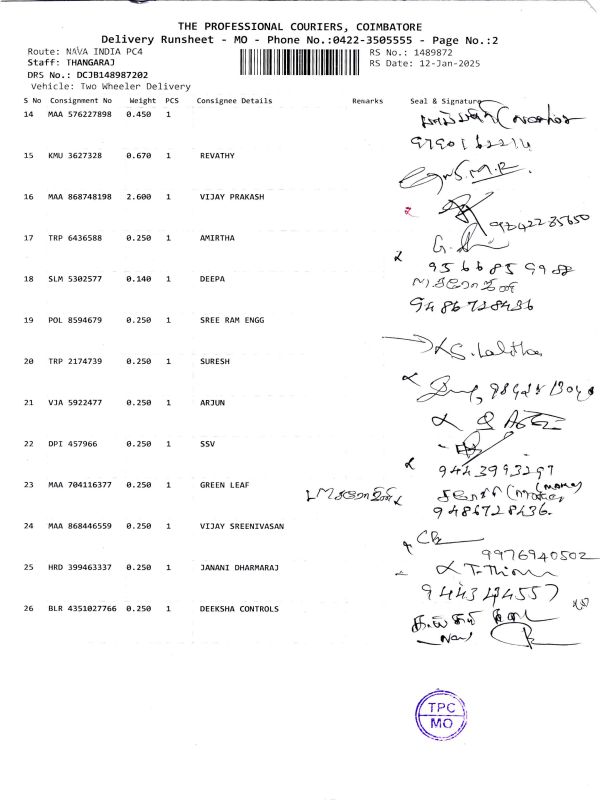 THE PROFESSIONAL COURIERS, COIMBATORE
Delivery Runsheet - MO - Phone No.:0422-3505555 - Page No.:2
Route: NAVA INDIA PC4 RS No.: 1489872
Staff: THANGARAJ RS Date: 12-Jan-2025
DRS No.: DCJB148987202 *DCJB148987202*
Vehicle: Two Wheeler Delivery
S No Consignment No Weight PCS Consignee Details Remarks Seal & Signature
14 MAA 576227898 0.450 1
15 KMU 3627328 0.670 1 REVATHY
S.M.R.
16 MAA 868748198 2.600 1 VIJAY PRAKASH
17 TRP 6436588 0.250 1 AMIRTHA
18 SLM 5302577 0.140 1 DEEPA
9486728436
19 POL 8594679 0.250 1 SREE RAM ENGG
S. Lalitha
20 TRP 2174739 0.250 1 SURESH
21 VJA 5922477 0.250 1 ARJUN
22 DPI 457966 0.250 1 SSV
9443993297
23 MAA 704116377 0.250 1 GREEN LEAF
9486728436.
24 MAA 868446559 0.250 1 VIJAY SREENIVASAN
9976940502
25 HRD 399463337 0.250 1 JANANI DHARMARAJ
26 BLR 4351027766 0.250 1 DEEKSHA CONTROLS
TPC
MO